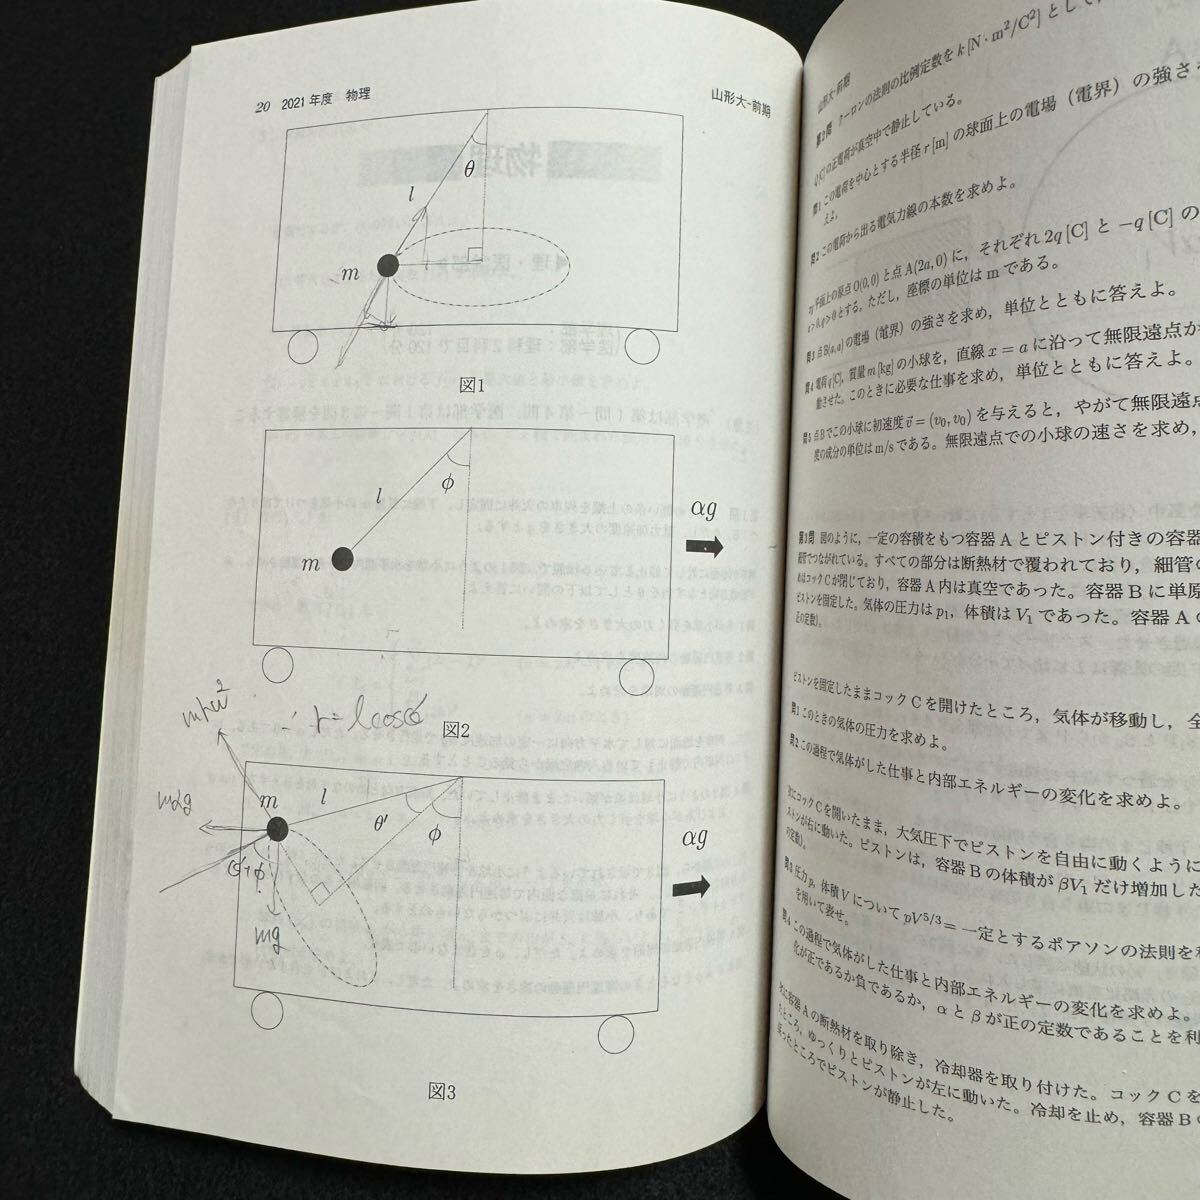 20 2021年度 物理
山形大-前期
θ
l
m
図1
l
φ
m
αg
図2
mrω²
∴ r = l cosφ
mαg
m
l
θ'
φ
αg
θ'+φ
mg
図3
山形大-前期
第2問 クーロンの法則の比例定数を k[N・m²/C²]として,
Q[C]の正電荷が真空中で静止している。
問1 この電荷を中心とする半径 r[m]の球面上の電場(電界)の強さ
えよ。
問2 この電荷から出る電気力線の本数を求めよ。
平面上の原点O(0,0)と点A(2a,0)に, それぞれ 2q[C]と −q[C]の
>0とする。ただし, 座標の単位は m である。
問3 点B(a,a)の電場(電界)の強さを求め, 単位とともに答えよ。
問4 電荷q[C], 質量m[kg]の小球を, 直線 x=a に沿って無限遠点か
動させた。このときに必要な仕事を求め, 単位とともに答えよ。
問5 点Bでこの小球に初速度 v=(v₀,v₀)を与えると, やがて無限遠点
度の成分の単位はm/sである。無限遠点での小球の速さを求め,
第3問 図のように, 一定の容積をもつ容器Aとピストン付きの容器
細管でつながれている。すべての部分は断熱材で覆われており, 細管の
めはコックCが閉じており, 容器A内は真空であった。容器Bに単原
ピストンを固定した。気体の圧力は p₁, 体積は V₁ であった。容器Aの
正の定数)。
ピストンを固定したままコックCを開けたところ, 気体が移動し, 全
問1 このときの気体の圧力を求めよ。
問2 この過程で気体がした仕事と内部エネルギーの変化を求めよ。
次にコックCを開いたまま, 大気圧下でピストンを自由に動くように
ストンが右に動いた。ピストンは, 容器Bの体積が βV₁ だけ増加した
の定数)。
問3 圧力p, 体積Vについて pV^5/3=一定とするポアソンの法則を
を用いて表せ。
問4 この過程で気体がした仕事と内部エネルギーの変化を求めよ。
化が正であるか負であるか, αとβが正の定数であることを利
に容器Aの断熱材を取り除き, 冷却器を取り付けた。コックCを
ところ, ゆっくりとピストンが左に動いた。冷却を止め, 容器Bの
ったところでピストンが静止した。